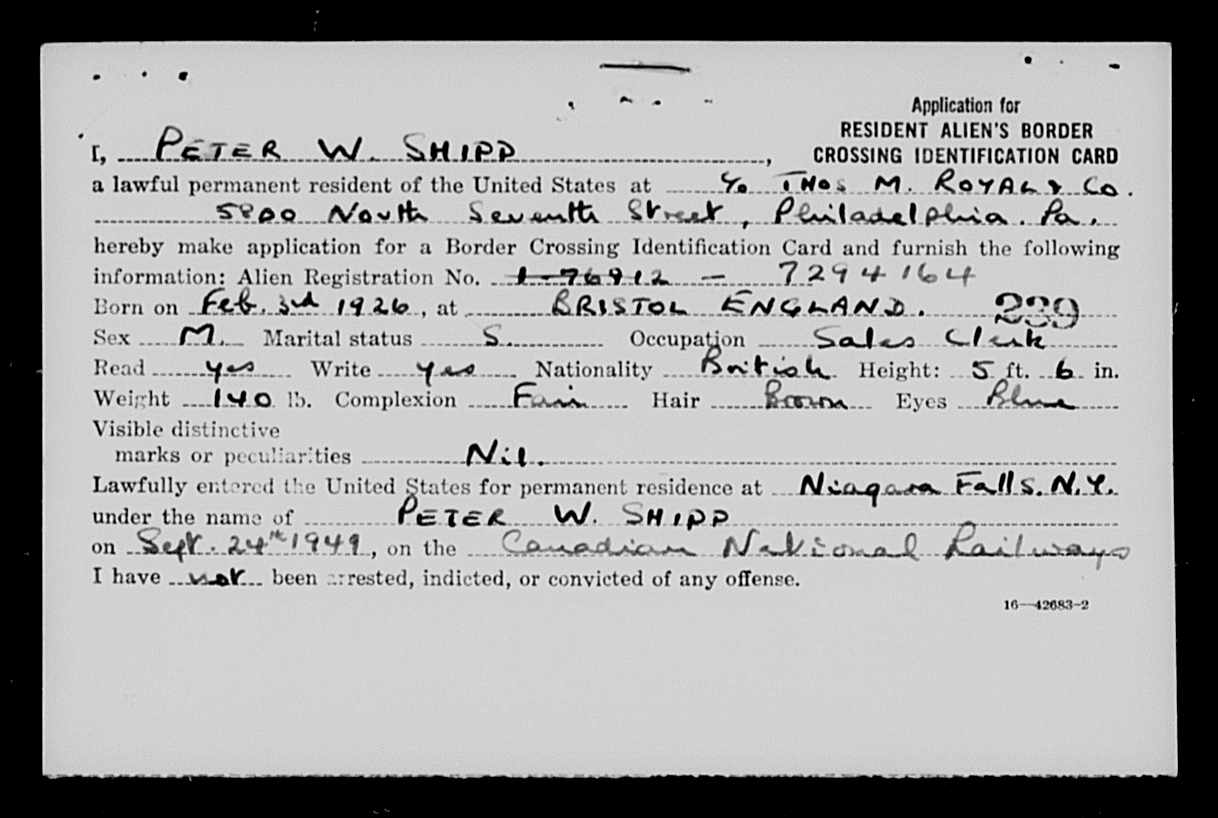 Application for
RESIDENT ALIEN'S BORDER
CROSSING IDENTIFICATION CARD
I, PETER W. SHIPP,
a lawful permanent resident of the United States at c/o THOS M. ROYAL & Co.
5800 North Seventh Street, Philadelphia. Pa.
hereby make application for a Border Crossing Identification Card and furnish the following
information: Alien Registration No. 1-76912 — 7294164
Born on Feb. 3rd 1926, at BRISTOL ENGLAND. 239
Sex M. Marital status S. Occupation Sales Clerk
Read yes Write yes Nationality British Height: 5 ft. 6 in.
Weight 140 lb. Complexion Fair Hair Brown Eyes Blue
Visible distinctive
marks or peculiarities Nil.
Lawfully entered the United States for permanent residence at Niagara Falls. N.Y.
under the name of PETER W. SHIPP
on Sept. 24th 1949, on the Canadian National Railways
I have not been arrested, indicted, or convicted of any offense.
16—42683-2